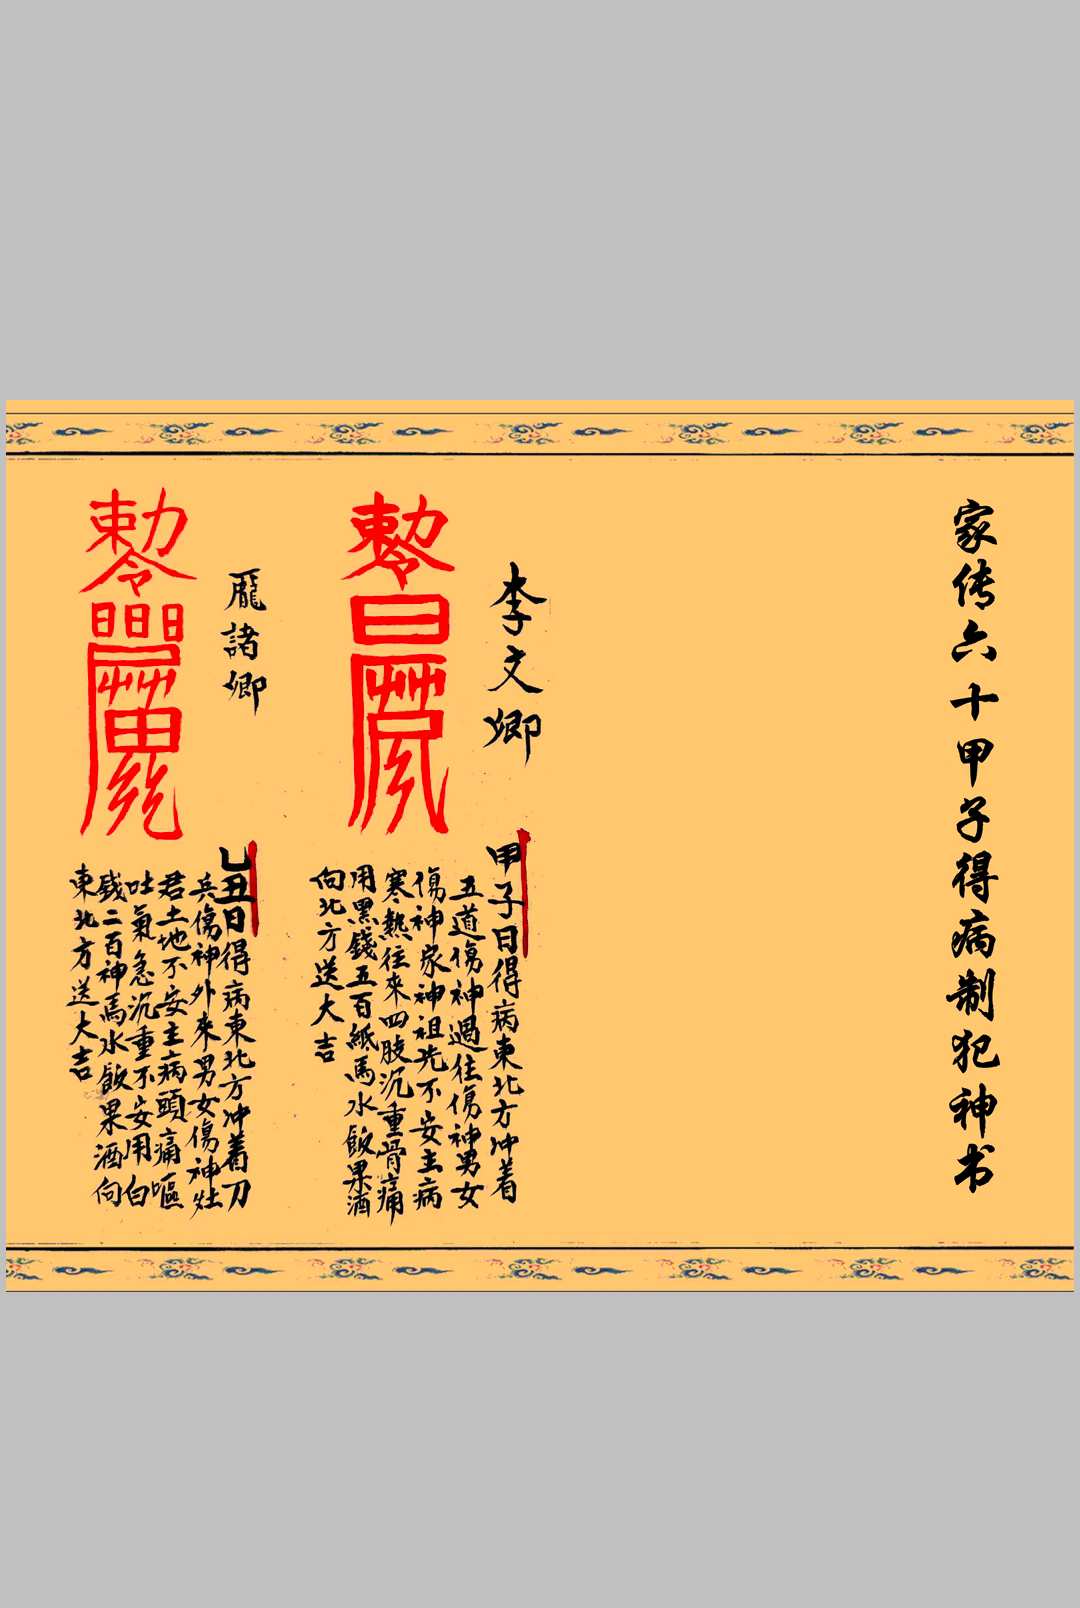 家传六十甲子得病制犯神书
李文卿
甲子日得病東北方冲着
五道傷神過往傷神男女
傷神家神祖先不安主病
寒熱往來四肢沉重骨痛
用黑錢五百紙馬水飯果酒
向北方送大吉
龎諸卿
乜丑日得病東北方冲着刀
兵傷神外來男女傷神灶
君土地不安主病頭痛嘔
吐氣急沉重不安用白
錢二百神馬水飯果酒向
東北方送大吉
敕令
敕令